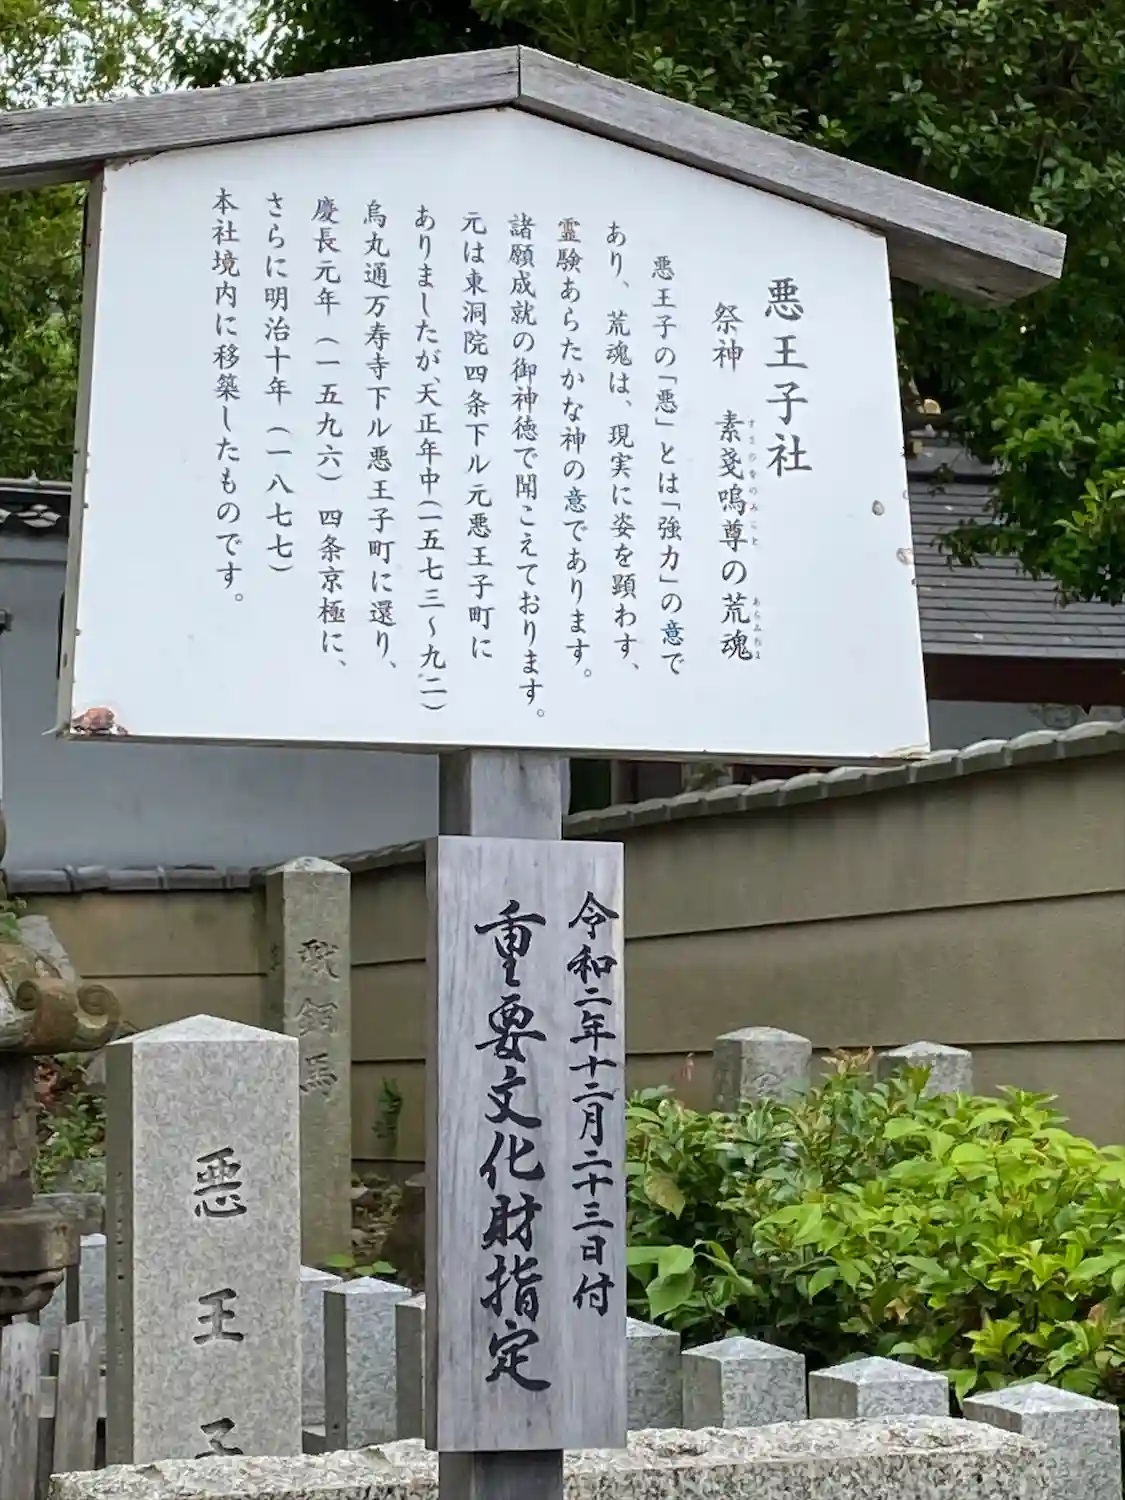 悪王子社
祭神 素戔嗚尊の荒魂
すさのをのみこと
あらみたま
悪王子の「悪」とは「強力」の意で
あり、荒魂は、現実に姿を顕わす、
霊験あらたかな神の意であります。
諸願成就の御神徳で聞こえております。
元は東洞院四条下ル元悪王子町に
ありましたが、天正年中(一五七三〜九二)
烏丸通万寿寺下ル悪王子町に還り、
慶長元年(一五九六)四条京極に、
さらに明治十年(一八七七)
本社境内に移築したものです。
令和二年十二月二十三日付
重要文化財指定
悪王子
銅馬